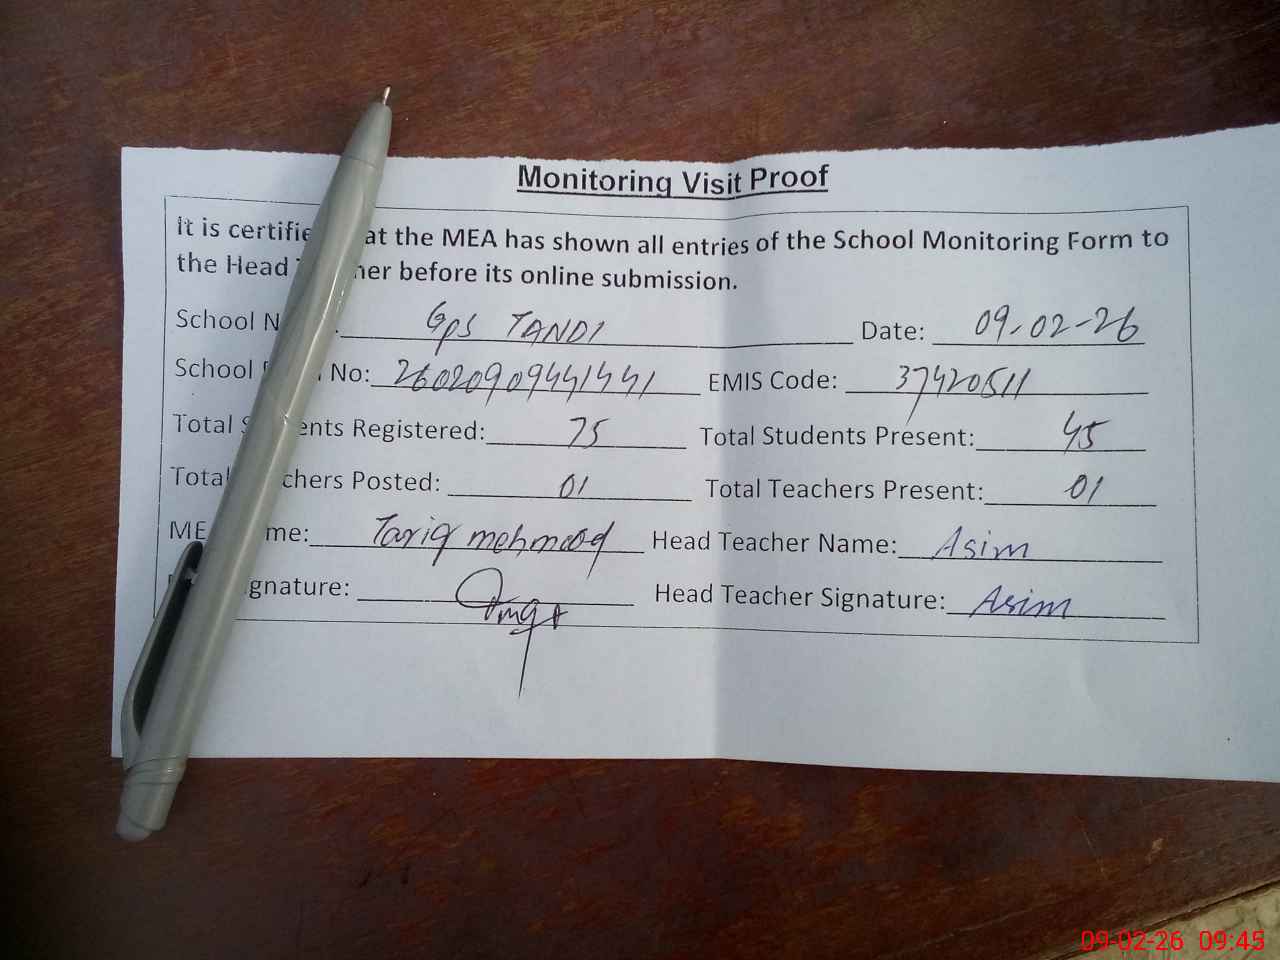 Monitoring Visit Proof
It is certifie at the MEA has shown all entries of the School Monitoring Form to
the Head her before its online submission.
School N Gps TANDI Date: 09-02-26
School No: 26020909441441 EMIS Code: 37420511
Total S ents Registered: 75 Total Students Present: 45
Total chers Posted: 01 Total Teachers Present: 01
ME me: Tariq mehmood Head Teacher Name: Asim
gnature: Head Teacher Signature: Asim
09-02-26 09:45